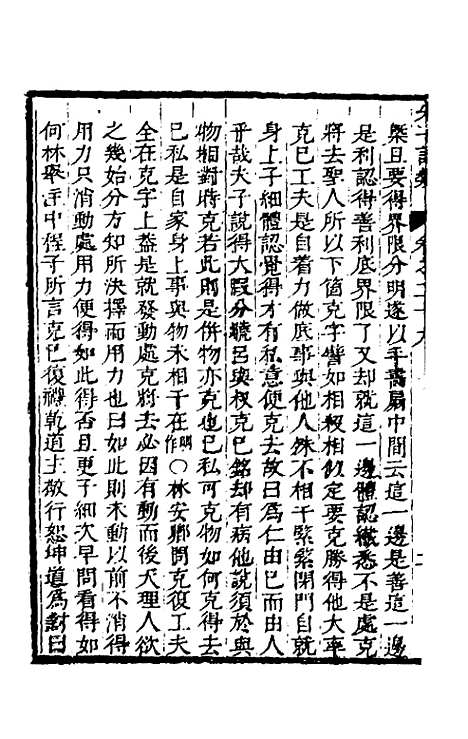 槩且要得界限分明遂以手畫扇中間云這一邊是善這一邊
是利認得善利底界限了又却就這一邊體認纖悉不是處克
將去聖人所以下箇克字譬如相殺相似定要克勝得他大率
克己工夫是自着力做底事與他人殊不相干緊緊閉門自就
身上子細體認覺得才有私意便克去故曰爲仁由己而由人
乎哉夫子說得大叚分曉呂與叔克己銘却有病他說須於與
物相對時克若此則是併物亦克也己私可克物如何克得去
己私是自家身上事與物未相干在明作〇林安卿問克復工夫
全在克字上蓋是就發動處克將去必因有動而後天理人欲
之幾始分方知所決擇而用力也曰如此則未動以前不消得
用力只消動處用力便得如此得否且更子細次早問看得如
何林舉注中程子所言克己復禮乾道主敬行恕坤道爲對曰